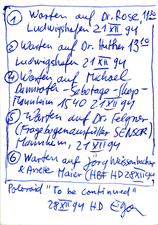 ① Warten auf Dr. Rose, 11 40
Ludwigshafen 21 XII 94
② Warten auf Dr. Huther 13 10
Ludwigshafen 21 XII 94
④ Warten auf Michael
Sabotage-
Mannheim 15 40 21 XII 94
⑤ Warten auf Dr. Felgner
(Fragebogenausfüller SENSOR)
Mannheim, 21 XII 94
⑥ Warten auf Jörg
& Maier (HBF HD 28 XII 94
Polaroid "To be continued"
28 XII 94 HD